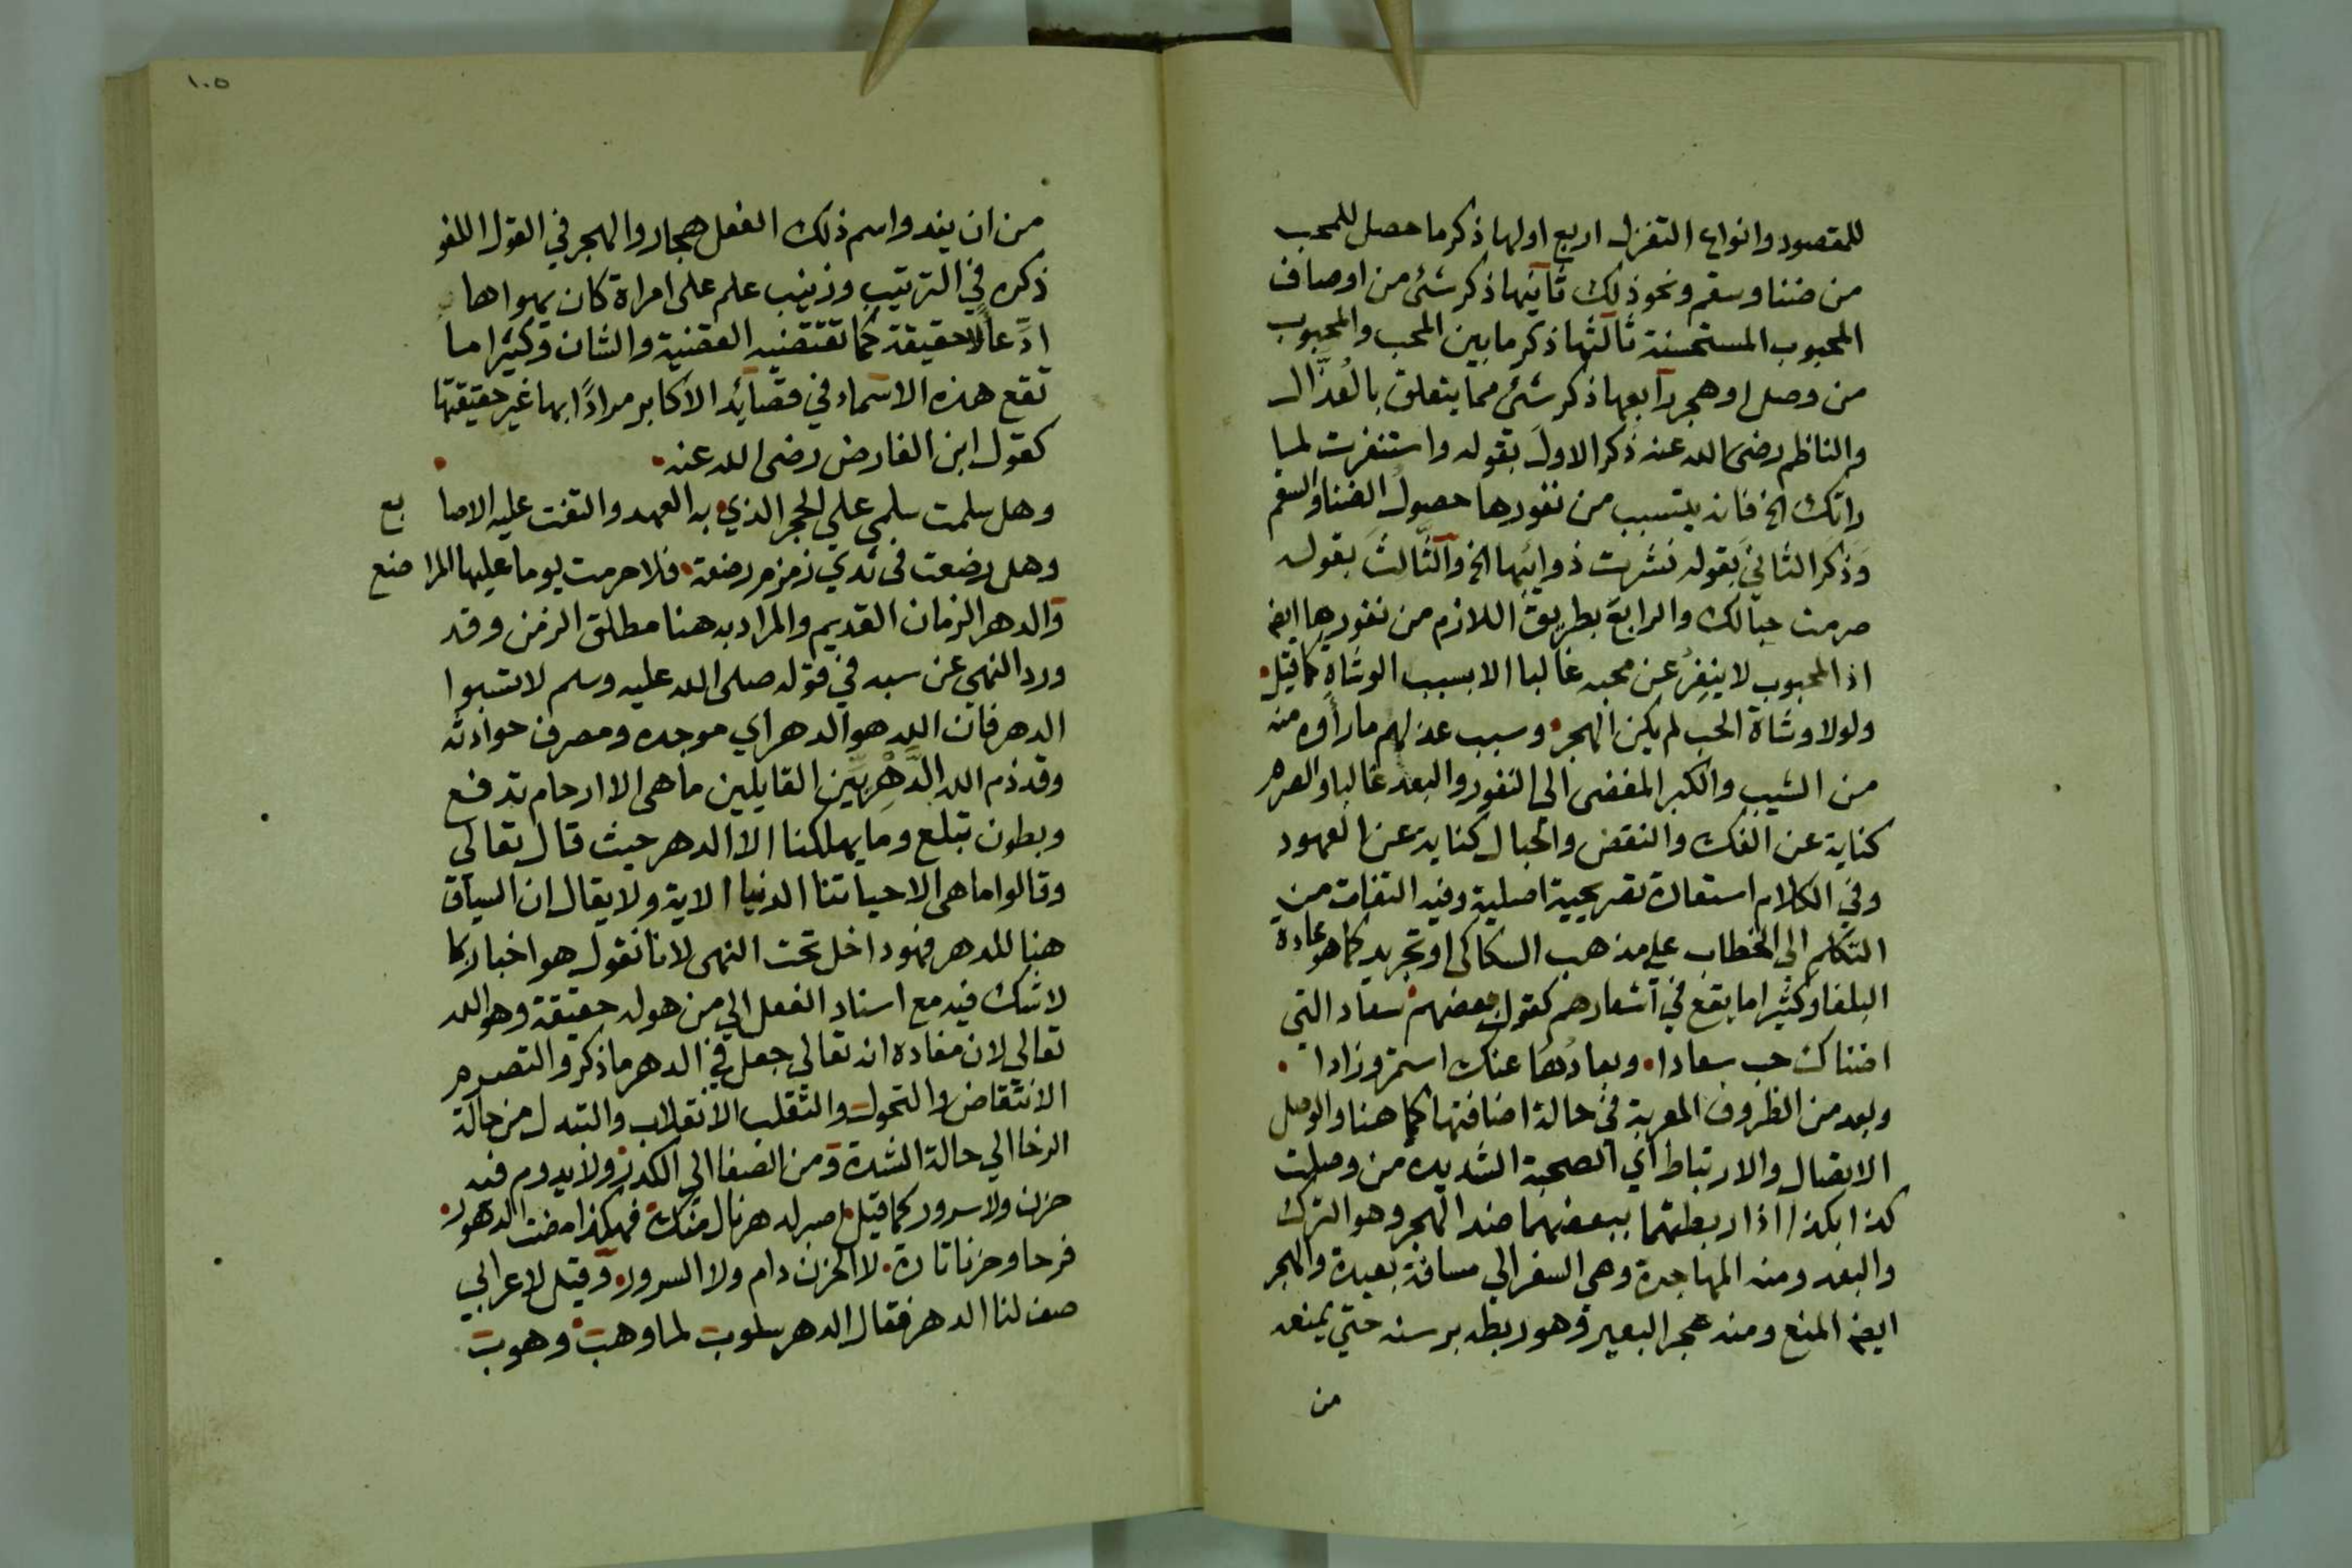 للمقصود وانواع التغزل اربع اولها ذكر ما حصل للمحب
من ضنا وسقم ونحو ذلك ثانيها ذكر شئ من اوصاف
المحبوب المستحسنة ثالثها ذكر ما بين المحب والمحبوب
من وصل او هجر رابعها ذكر شئ مما يتعلق بالعُذَّال
والناظم رضى الله عنه ذكر الاول بقوله واستنفرت لما
راتك الخ فانه يتسبب من نفورها حصول الضنا والسقم
وَذَكَر الثاني بقوله نشرت ذوائبها الخ والثَّالث بقوله
صرمت حبالك والرابع بطريق اللازم من نفورها ايض
اذ المحبوب لا ينفرُ عن محبه غالبا الا بسبب الوشاة كما قيل
ولولا وشاة الحب لم يكن الهجر وسبب عذلهم ما رأوه منه
من الشيب والكبر المفضى الى النفور والبعد غالبا والصرم
كناية عن الفك والنقض والحبال كناية عن العهود
وفي الكلام استعارة تصريحية اصلية وفيه التفات من
التكلم الي الخطاب علي مذهب السكاكى او تجريد كما هو عادة
البلغا وكثيرا ما يقع في اشعارهم كقول بعضهم سعاد التي
اضناك حب سعادا وبعادُها عنك استمر وزادا
وبعد من الظروف المعربة في حالة اضافتها كما هنا والوصل
الاتصال والارتباط اي الصحبة الشديدة من وصلت
كذا بكذا اذا ربطتهما ببعضهما ضد الهجر وهو الترك
والبعد ومنه المهاجرة وهي السفر الي مسافة بعيدة والهجر
ايض المنع ومنه هجر البعير وهو ربطه برسنه حتي يمنعه
من
١٠٥
من ان يند واسم ذلك الفعل هجار والهجر في القول اللغو
ذكره في الترتيب وزينب علم على امراة كان يهواها
ادِّعاً لا حقيقة كما تقتضيه القضية والشان وكثيرا ما
تقع هذه الاسماء في قصائد الاكابر مرادًا بها غير حقيقتها
كقول ابن الفارض رضى الله عنه
وهل سلمت سلمى علي الحجر الذي به العهد والتفت عليه الاصابع
وهل رضعت فى ثدي زمزم رضعة فلا حرمت يوما عليها المراضع
والدهر الزمان القديم والمراد به هنا مطلق الزمن وقد
ورد النهي عن سبه في قوله صلى الله عليه وسلم لا تسبوا
الدهر فان الله هو الدهر أي موجده ومصرف حوادثه
وقد ذم الله الدَّهْرِيِّين القايلين ما هى الا ارحام تدفع
وبطون تبلع وما يهلكنا الا الدهر حيث قال تعالى
وقالوا ما هى الا حياتنا الدنيا الاية ولا يقال ان السياق
هنا للدهر فهو داخل تحت النهى لانا نقول هو اخبار كما
لا شك فيه مع اسناد الفعل الي من هو له حقيقة وهو الله
تعالي لان مفاده انه تعالي جعل في الدهر ما ذكر والتصرم
الانتقاض والتحول والتقلب الانقلاب والتبدل من حالة
الرخا الي حالة الشدة ومن الصفا الي الكدر ولا يدوم فيه
حزن ولا سرور كما قيل اصبر لدهر نال منك فهكذا مضت الدهور
فرحا وحزنا تارة لا الحزن دام ولا السرور وقيل لاعرابي
صف لنا الدهر فقال الدهر سلوب لما وهب وهوب